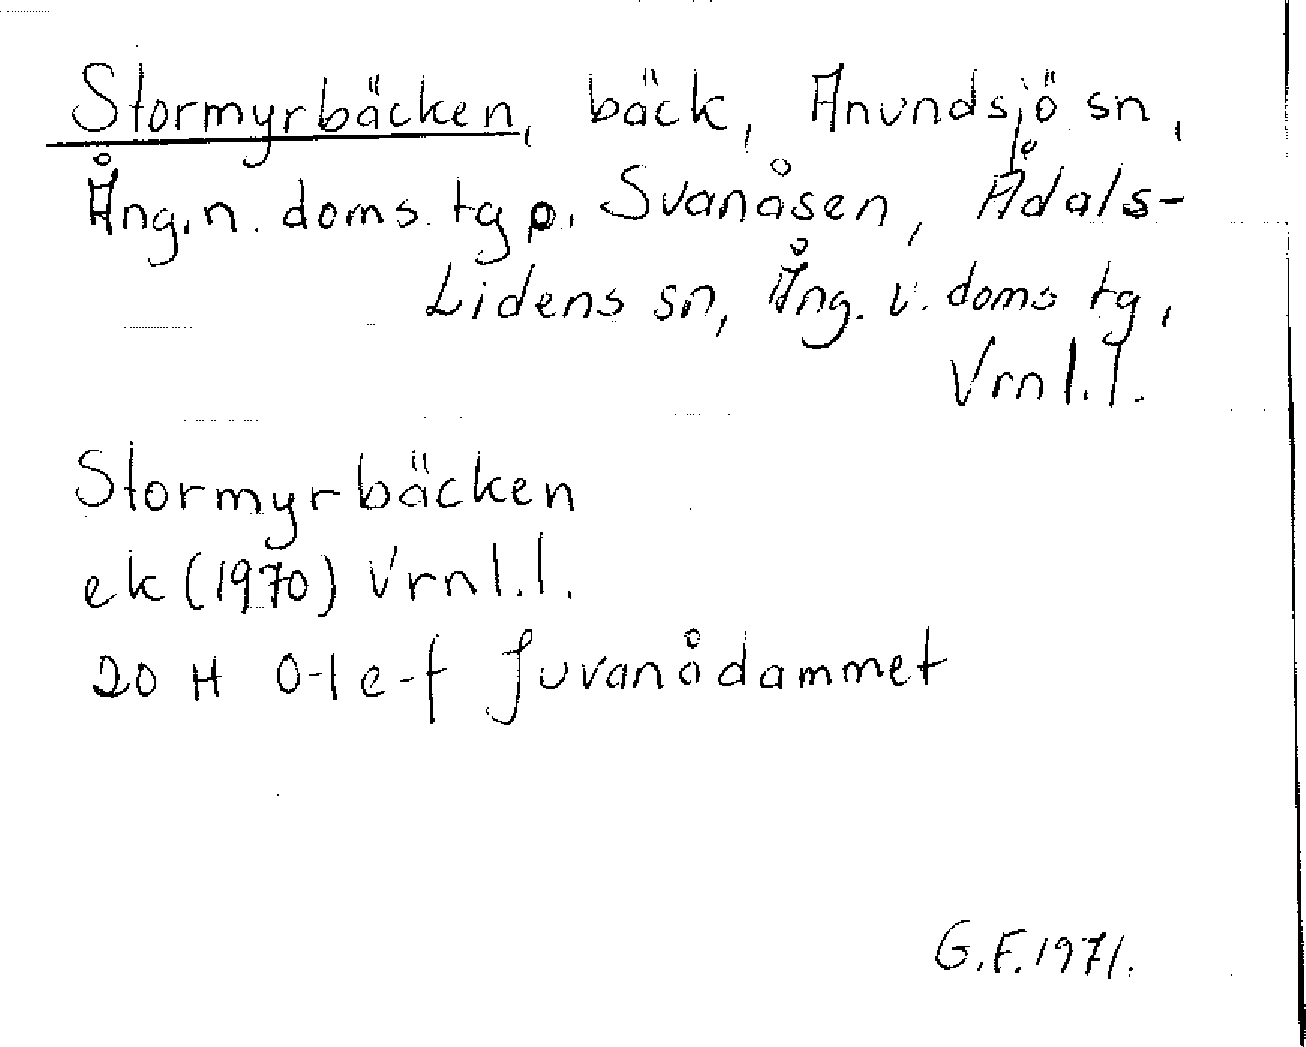 Stormyrbäcken, bäck, Anundsjö sn,
Ång. n. doms. tg p. Svanåsen, Ådals-
Lidens sn, Ång. v. doms tg,
Vrnl.l.
Stormyrbäcken
ek (1970) Vrnl.l.
20 H 0-1 e-f Juvanådammet
G.F. 1971.